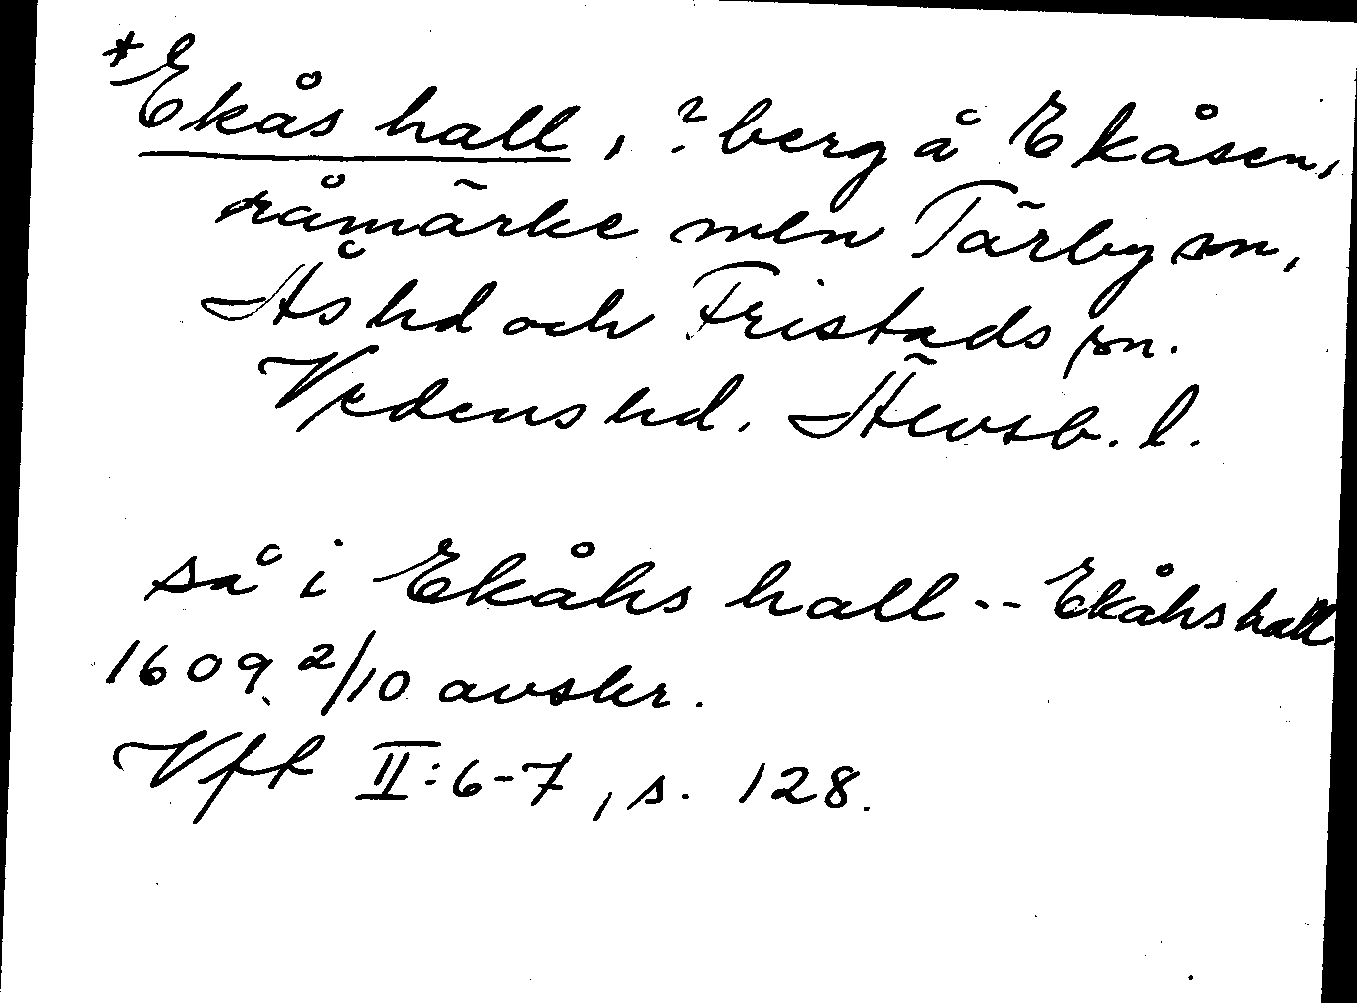 *Ekås hall, ?berg å Ekåsen,
råmärke mln Tärby sn,
Ås hd och Fristads sn.
Vedens hd. Älvsb. l.
så i Ekåhs hall -- Ekåhs hall
1609 2/10 avskr.
Vff II:6-7, s. 128.